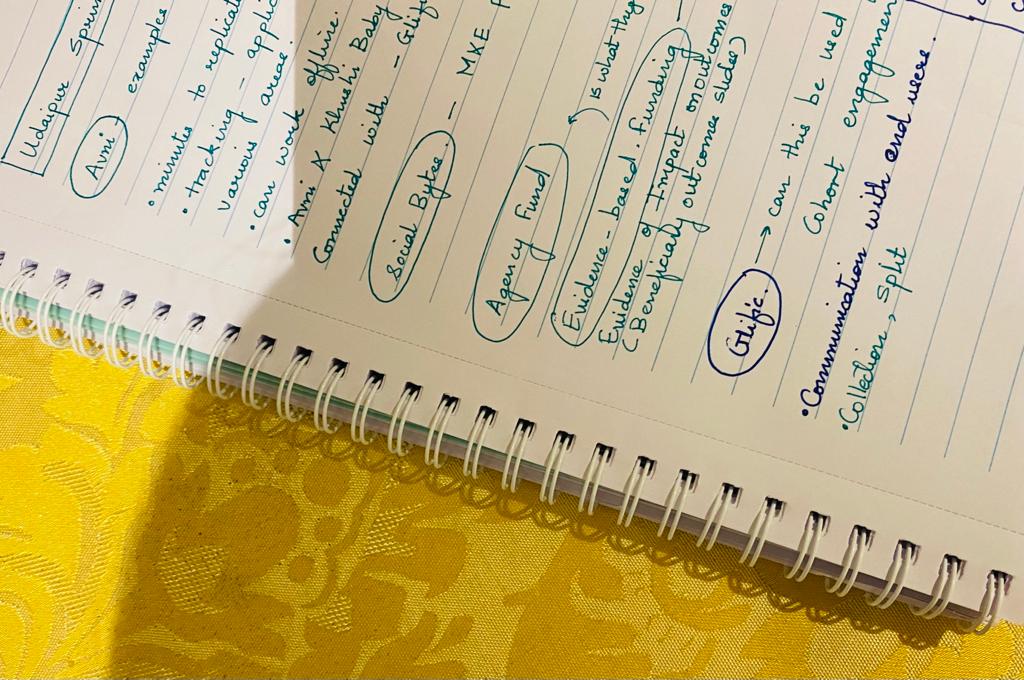 Udaipur
Avni
examples
• minutes to
• tracking -
various
• can work offline.
areas.
• Avni X Khushi Baby
Connected with - Glific
Social Bytes - MKE
Agency Fund
is what they
Evidence-based. Funding
Evidence of Impact on outcomes
(Beneficially outcomes slides)
Glific. → can this be used
Cohort engagement
• Communication with end users.
• Collection, split